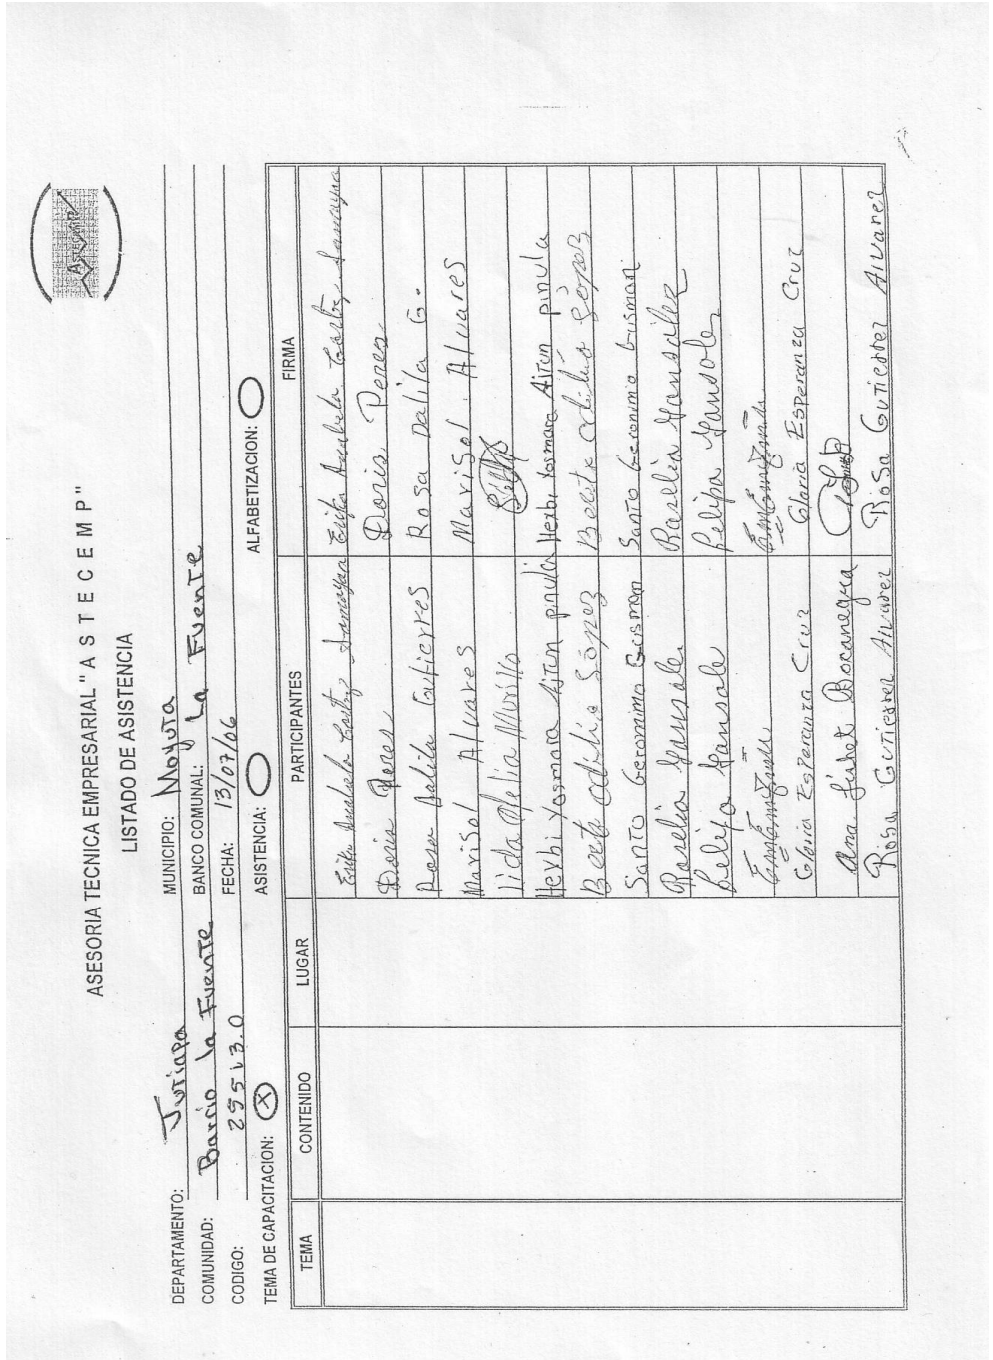 ASTECEMP
ASESORIA TECNICA EMPRESARIAL " A S T E C E M P "
LISTADO DE ASISTENCIA
DEPARTAMENTO: Jutiapa MUNICIPIO: Moyuta
COMUNIDAD: Barrio La Fuente BANCO COMUNAL: La Fuente
CODIGO: FECHA: 13/07/06
TEMA DE CAPACITACION: X ASISTENCIA: ALFABETIZACION:
TEMA CONTENIDO LUGAR PARTICIPANTES FIRMA
Doris Peres Doris Peres
Rosa Dalila Gutierres Rosa Dalila G.
Marisol Alvares Marisol Alvares
Lida Melia Murillo
Herbi Yosmara Pinula Herbi Yosmara pinula
Berta odilia López odilia López
Santo Geronimo Gusman Santo Geronimo Gusman
Roselia Gansale Roselia Gansalez
Felipa Gansale Felipa Gansale
Gloria Esperanza Cruz Gloria Esperanza Cruz
Ana Lisbet Bocanegra
Rosa Gutierrer Alvarer Rosa Gutierrer Alvarer